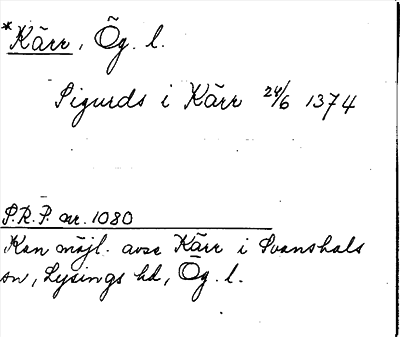 *Kärr, Ög. l.
Sigurds i Kärr 24/6 1374
S.R.P. nr. 1080
Kan möjl. avse Kärr i Svanshals
sn, Lysings hd, Ög. l.